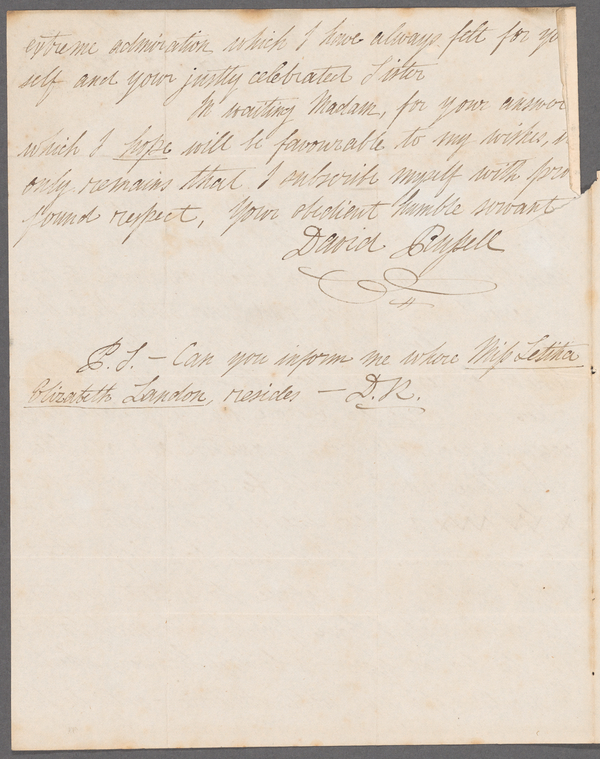 extreme admiration which I have always felt for yo
self and your justly celebrated Sister
In waiting Madam, for your answer
which I hope will be favourable to my wishes, i
only remains that I subscribe myself with pro
found respect, Your obedient humble servant
David
P.S. – Can you inform me where Miss Letitia
Elizabeth Landon, resides – D.R.